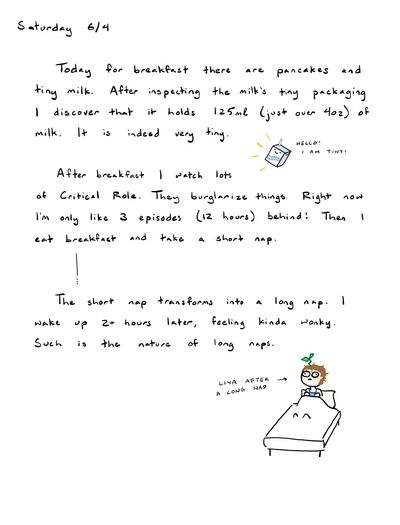 Saturday 6/4
Today for breakfast there are pancakes and
tiny milk. After inspecting the milk's tiny packaging
I discover that it holds 125ml (just over 4oz) of
milk. It is indeed very tiny.
HELLO!
I AM TINY!
After breakfast I watch lots
of Critical Role. They burglarize things. Right now
I'm only like 3 episodes (12 hours) behind! Then I
eat breakfast and take a short nap.
The short nap transforms into a long nap. I
wake up 2+ hours later, feeling kinda wonky.
Such is the nature of long naps.
LIYA AFTER
A LONG NAP